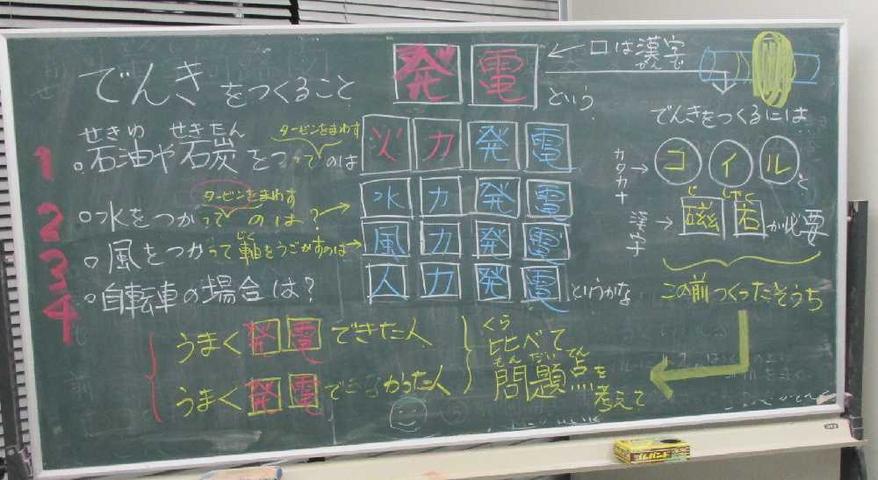 でんきをつくること 発電 という
←口は漢字
でんきをつくるには
カタカナ→コイルと
漢字→磁石が必要
じしゃく
この前つくったそうち
1
せきゆ せきたん タービンをまわす
。石油や石炭をつかってのは 火力発電
2
タービンをまわす
。水をつかってのは？→水力発電
3
じく
。風をつかって軸をうごかすのは→風力発電
4
。自転車の場合は？ 人力発電 というかな
うまく発電できた人
うまく発電できなかった人
くら
比べて
もんだいてん
問題点を
考えて